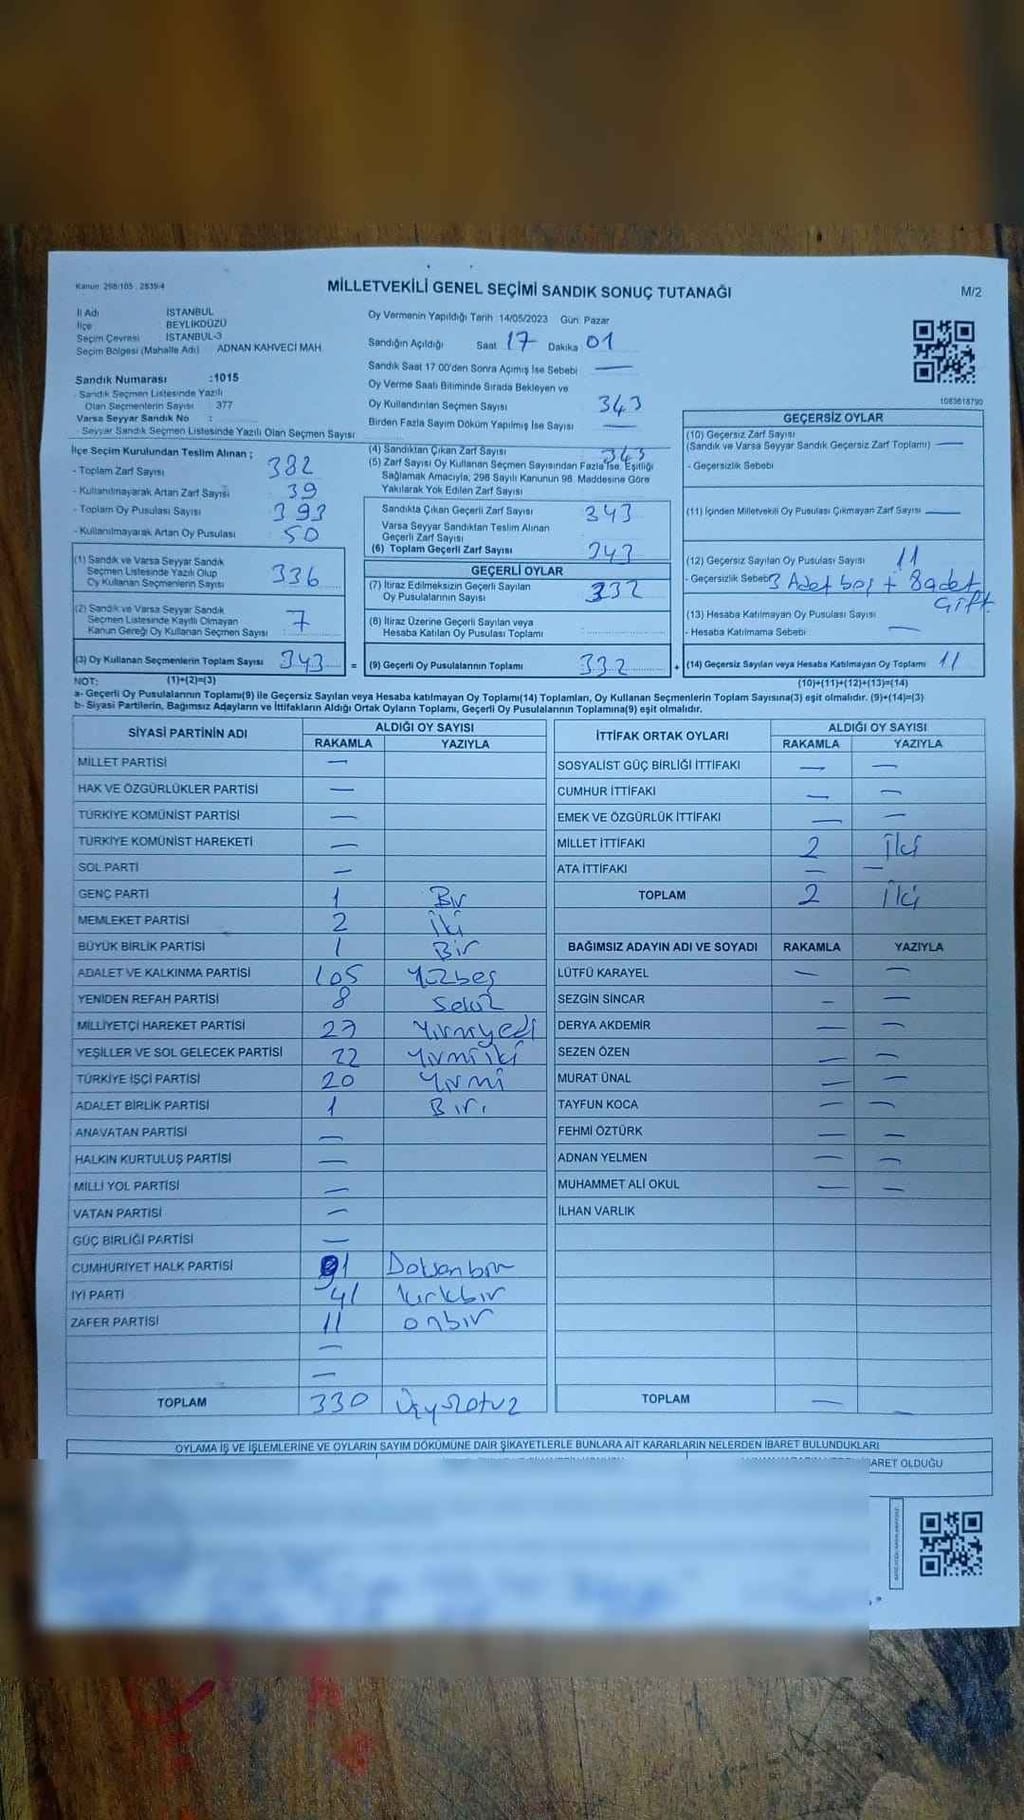 Kanun 298/105 , 2839/4
MİLLETVEKİLİ GENEL SEÇİMİ SANDIK SONUÇ TUTANAĞI
M/2
İl Adı İSTANBUL
İlçe BEYLİKDÜZÜ
Seçim Çevresi İSTANBUL-3
Seçim Bölgesi (Mahalle Adı) ADNAN KAHVECİ MAH.
Sandık Numarası :1015
- Sandık Seçmen Listesinde Yazılı
Olan Seçmenlerin Sayısı 377
Varsa Seyyar Sandık No :
- Seyyar Sandık Seçmen Listesinde Yazılı Olan Seçmen Sayısı
Oy Vermenin Yapıldığı Tarih 14/05/2023 Gün: Pazar
Sandığın Açıldığı Saat 17 Dakika 01
Sandık Saat 17.00'den Sonra Açımış İse Sebebi —
Oy Verme Saati Bitiminde Sırada Bekleyen ve
Oy Kullandırılan Seçmen Sayısı 343
Birden Fazla Sayım Döküm Yapılmış İse Sayısı —
1083618790
İlçe Seçim Kurulundan Teslim Alınan ;
- Toplam Zarf Sayısı 382
- Kullanılmayarak Artan Zarf Sayısı 39
- Toplam Oy Pusulası Sayısı 393
- Kullanılmayarak Artan Oy Pusulası 50
(1) Sandık ve Varsa Seyyar Sandık
Seçmen Listesinde Yazılı Olup
Oy Kullanan Seçmenlerin Sayısı 336
(2) Sandık ve Varsa Seyyar Sandık
Seçmen Listesinde Kayıtlı Olmayan
Kanun Gereği Oy Kullanan Seçmen Sayısı 7
(3) Oy Kullanan Seçmenlerin Toplam Sayısı 343 =
(4) Sandıktan Çıkan Zarf Sayısı 343
(5) Zarf Sayısı Oy Kullanan Seçmen Sayısından Fazla İse, Eşitliği
Sağlamak Amacıyla, 298 Sayılı Kanunun 98. Maddesine Göre
Yakılarak Yok Edilen Zarf Sayısı
Sandıkta Çıkan Geçerli Zarf Sayısı 343
Varsa Seyyar Sandıktan Teslim Alınan
Geçerli Zarf Sayısı
(6) Toplam Geçerli Zarf Sayısı 343
GEÇERLİ OYLAR
(7) İtiraz Edilmeksizin Geçerli Sayılan
Oy Pusulalarının Sayısı 332
(8) İtiraz Üzerine Geçerli Sayılan veya
Hesaba Katılan Oy Pusulası Toplamı
(9) Geçerli Oy Pusulalarının Toplamı 332 +
GEÇERSİZ OYLAR
(10) Geçersiz Zarf Sayısı
(Sandık ve Varsa Seyyar Sandık Geçersiz Zarf Toplamı) —
- Geçersizlik Sebebi
(11) İçinden Milletvekili Oy Pusulası Çıkmayan Zarf Sayısı —
(12) Geçersiz Sayılan Oy Pusulası Sayısı 11
- Geçersizlik Sebebi 3 Adet boş + 8 adet
çift
(13) Hesaba Katılmayan Oy Pusulası Sayısı —
- Hesaba Katılmama Sebebi
(14) Geçersiz Sayılan veya Hesaba Katılmayan Oy Toplamı 11
NOT: (1)+(2)=(3)
(10)+(11)+(12)+(13)=(14)
a- Geçerli Oy Pusulalarının Toplamı(9) ile Geçersiz Sayılan veya Hesaba katılmayan Oy Toplamı(14) Toplamları, Oy Kullanan Seçmenlerin Toplam Sayısına(3) eşit olmalıdır. (9)+(14)=(3)
b- Siyasi Partilerin, Bağımsız Adayların ve İttifakların Aldığı Ortak Oyların Toplamı, Geçerli Oy Pusulalarının Toplamına(9) eşit olmalıdır.
SİYASİ PARTİNİN ADI ALDIĞI OY SAYISI
RAKAMLA YAZIYLA
MİLLET PARTİSİ —
HAK VE ÖZGÜRLÜKLER PARTİSİ —
TÜRKİYE KOMÜNİST PARTİSİ —
TÜRKİYE KOMÜNİST HAREKETİ —
SOL PARTİ —
GENÇ PARTİ 1 Bir
MEMLEKET PARTİSİ 2 iki
BÜYÜK BİRLİK PARTİSİ 1 Bir
ADALET VE KALKINMA PARTİSİ 105 Yüzbeş
YENİDEN REFAH PARTİSİ 8 Sekiz
MİLLİYETÇİ HAREKET PARTİSİ 27 Yirmiyedi
YEŞİLLER VE SOL GELECEK PARTİSİ 22 Yirmiiki
TÜRKİYE İŞÇİ PARTİSİ 20 Yirmi
ADALET BİRLİK PARTİSİ 1 Bir
ANAVATAN PARTİSİ —
HALKIN KURTULUŞ PARTİSİ —
MİLLİ YOL PARTİSİ —
VATAN PARTİSİ —
GÜÇ BİRLİĞİ PARTİSİ —
CUMHURİYET HALK PARTİSİ 91 Doksanbir
İYİ PARTİ 41 kırkbir
ZAFER PARTİSİ 11 onbir
—
—
TOPLAM 330 Üçyüzotuz
İTTİFAK ORTAK OYLARI ALDIĞI OY SAYISI
RAKAMLA YAZIYLA
SOSYALİST GÜÇ BİRLİĞİ İTTİFAKI — —
CUMHUR İTTİFAKI — —
EMEK VE ÖZGÜRLÜK İTTİFAKI — —
MİLLET İTTİFAKI 2 İki
ATA İTTİFAKI — —
TOPLAM 2 İki
BAĞIMSIZ ADAYIN ADI VE SOYADI RAKAMLA YAZIYLA
LÜTFÜ KARAYEL — —
SEZGİN SİNCAR — —
DERYA AKDEMİR — —
SEZEN ÖZEN — —
MURAT ÜNAL — —
TAYFUN KOCA — —
FEHMİ ÖZTÜRK — —
ADNAN YELMEN — —
MUHAMMET ALİ OKUL — —
İLHAN VARLIK
TOPLAM — —
OYLAMA İŞ VE İŞLEMLERİNE VE OYLARIN SAYIM DÖKÜMÜNE DAİR ŞİKAYETLERLE BUNLARA AİT KARARLARIN NELERDEN İBARET BULUNDUKLARI
BARET OLDUĞU